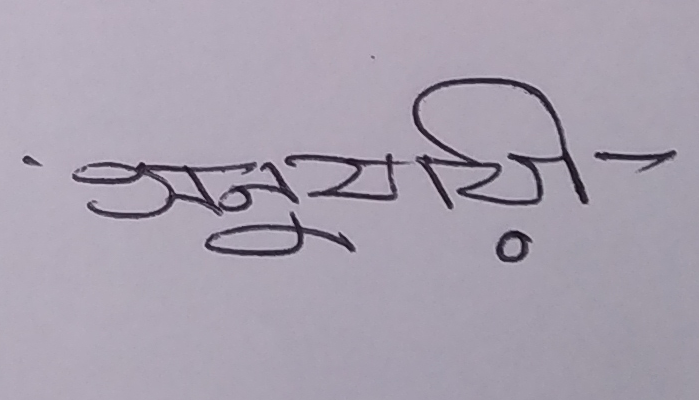 অনুযায়ী -